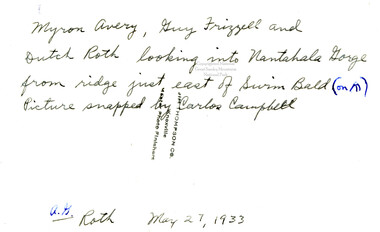 Myron Avery, Guy Frizzell and
Dutch Roth looking into Nantahala Gorge
from ridge just east of Swim Bald (on AT)
Picture snapped by Carlos Campbell
THOMPSON CO.
Knoxville
Photo Finishers
Roth May 27, 1933